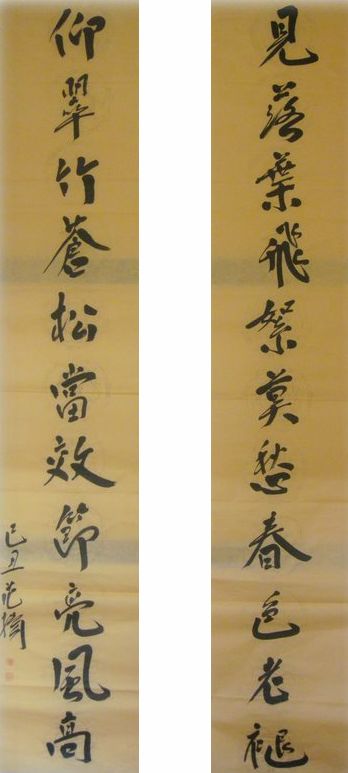 見落葉飛繁莫愁春色老褪
仰翠竹蒼松當效節亮風高
己丑范